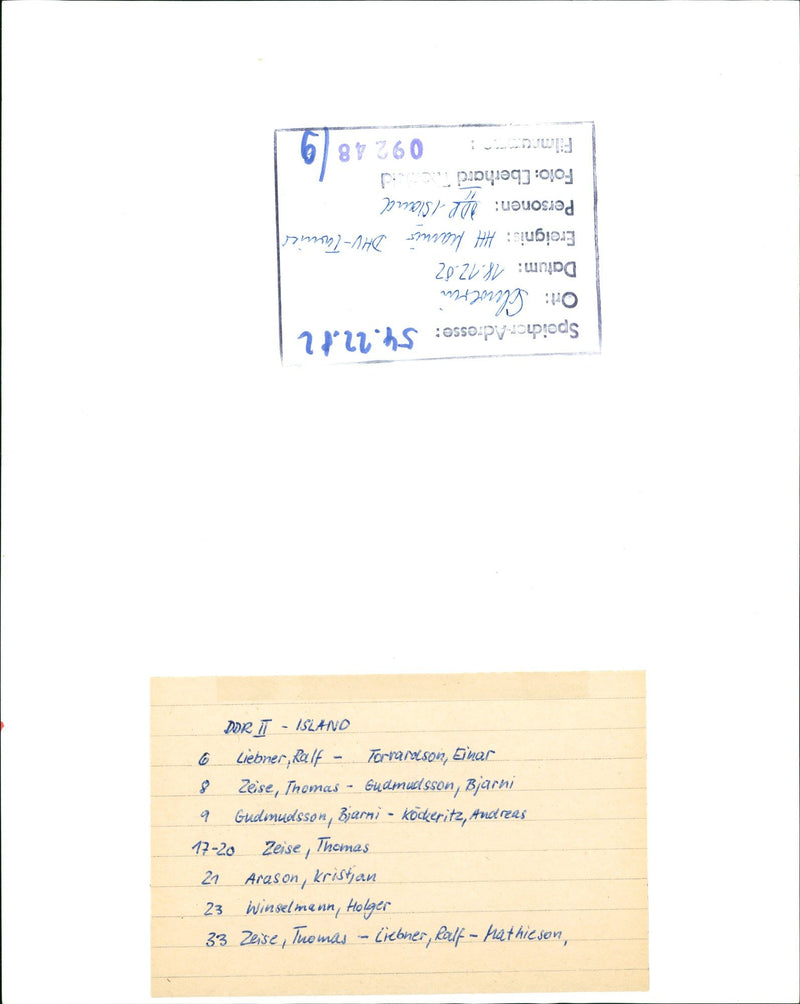 Speicher-Adresse: 54.22.82
Ort: Schwerin
Datum: 18.12.82
Ereignis: HH Männer DHV-Turnier
Personen: DDR II - Island
Foto: Eberhard
Filmnummer: 09248/9
DDR II - ISLAND
6 Liebner, Ralf - Torvardson, Einar
8 Zeise, Thomas - Gudmudsson, Bjarni
9 Gudmudsson, Bjarni - Köckeritz, Andreas
17-20 Zeise, Thomas
21 Arason, Kristjan
23 Winselmann, Holger
33 Zeise, Thomas - Liebner, Ralf - Mathieson,